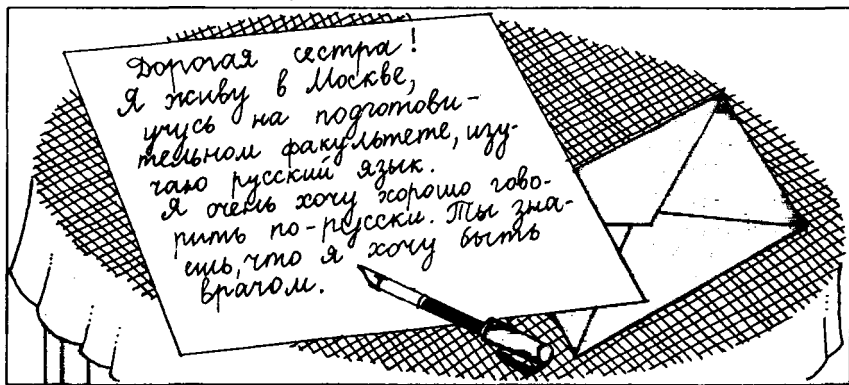 Дорогая сестра!
Я живу в Москве,
учусь на подготови-
тельном факультете, изу-
чаю русский язык.
Я очень хочу хорошо гово-
рить по-русски. Ты зна-
ешь, что я хочу быть
врачом.